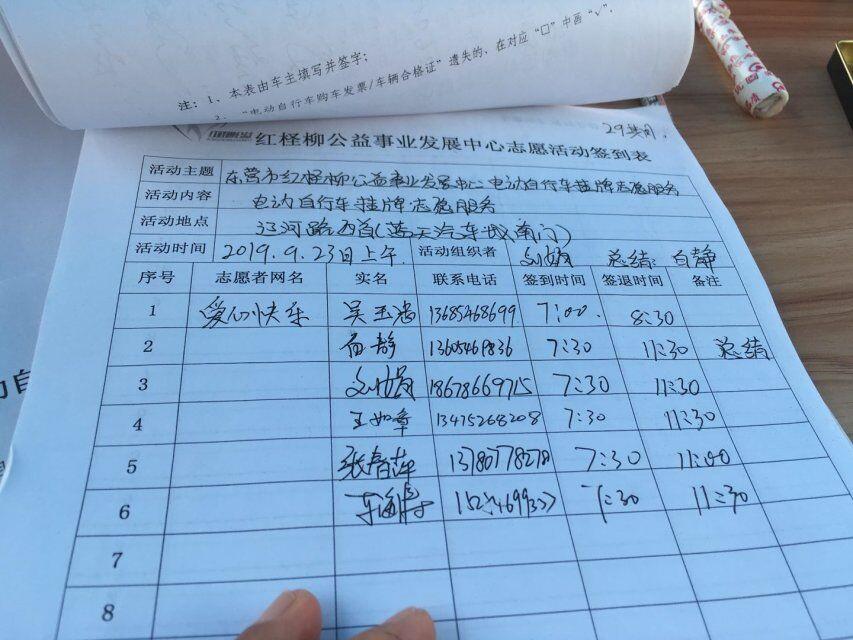 注：1、本表由车主填写并签字；
2、"电动自行车购车发票/车辆合格证"遗失的，在对应"□"中画"√"．
红柽柳公益事业发展中心志愿活动签到表
活动主题 东营市红柽柳公益事业发展中心电动自行车挂牌志愿服务
活动内容 电动自行车挂牌志愿服务
活动地点 江河路西首(蓝天汽车城南门)
活动时间 2019.9.23日上午 活动组织者 总结:白静
序号 志愿者网名 实名 联系电话 签到时间 签退时间 备注
1 爱心快乐 吴玉浩 13685468699 7:00 8:30
2 白静 7:30 11:30 总结
3 18678669715 7:30 11:30
4 王如章 13475268208 7:30 11:30
5 张春萍 7:30 11:00
6 7:30 11:30
7
8